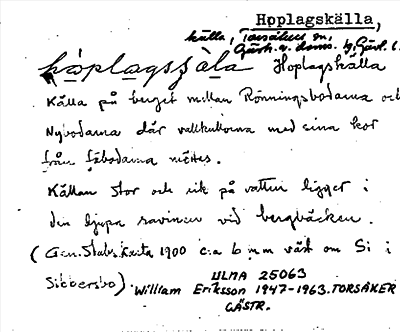 Hoplagskälla,
källa, Torsåkers sn,
Gästr. ö. doms. hg, Gävl. l.
hòplagsʃä̀la Hoplagskälla
Källa på berget mellan Rönningsbodarna och
Nybodarna där vallkullorna med sina kor
från fäbodarna möttes.
Källan stor och rik på vatten ligger i
den djupa ravinen vid bergbäcken.
(Gen. Stabs. Karta 1900 c:a 6 mm väst om Si i
Sibbersbo).
ULMA 25063
William Eriksson 1947-1963. TORSÅKER
GÄSTR.